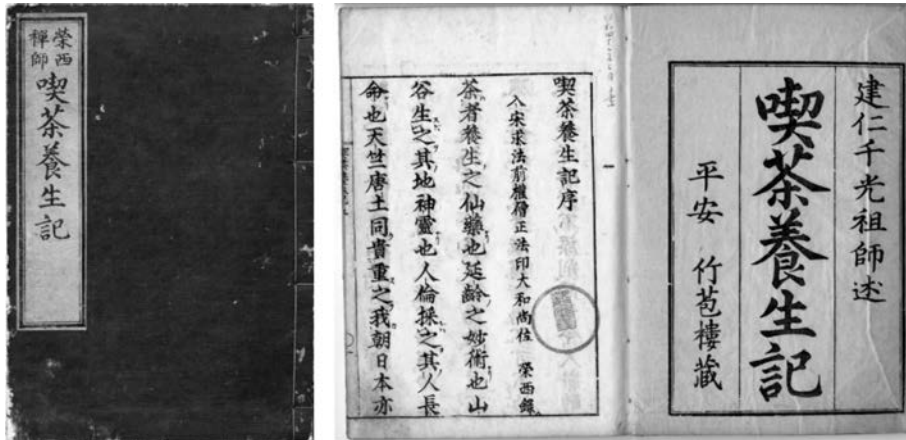 榮西
禅師
喫茶養生記
建仁千光祖師述
喫茶養生記
平安 竹苞樓藏
喫茶養生記序
入宋求法前權僧正法印大和尚位 榮西錄
茶者養生之仙藥也延齡之妙術也山
谷生之其地神靈也人倫採之其人長
命也天竺唐土同貴重之我朝日本亦